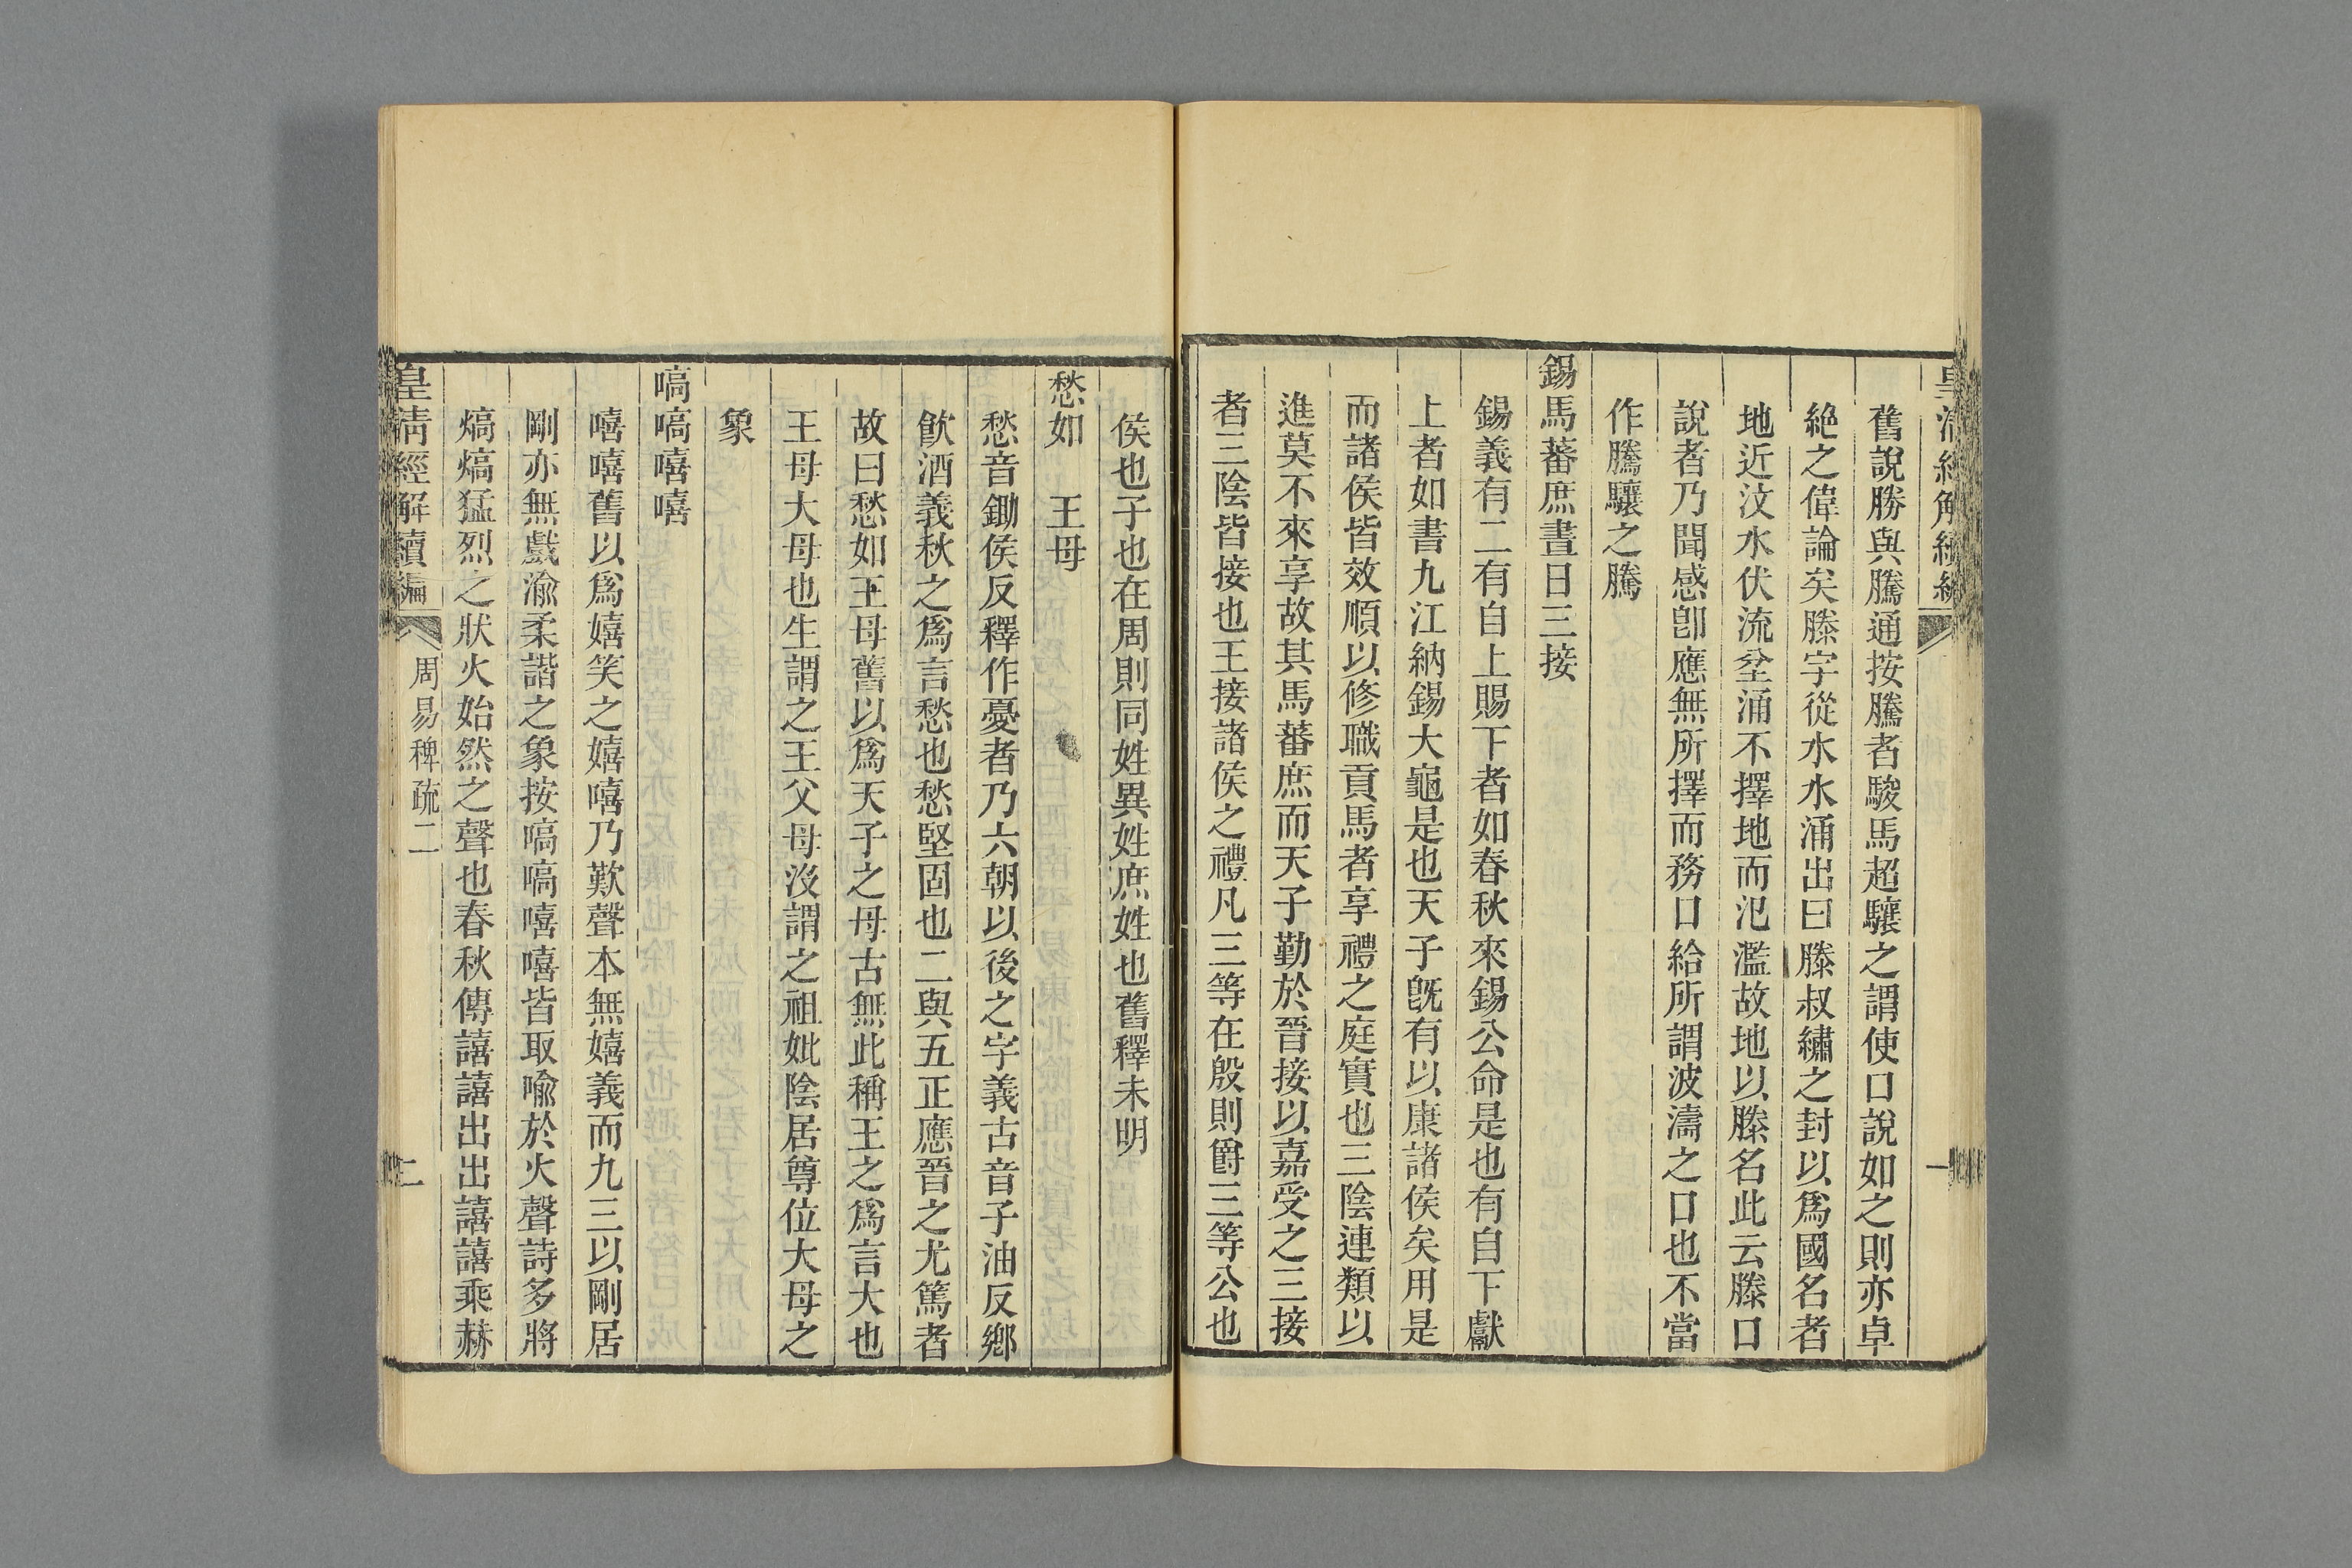 皇清經解續編
一
舊說勝與騰通按騰者駿馬超驤之謂使口說如之則亦卓
絶之偉論矣滕字從水水涌出曰滕叔繡之封以爲國名者
地近汶水伏流坌涌不擇地而氾濫故地以滕名此云滕口
說者乃聞感卽應無所擇而務口給所謂波濤之口也不當
作騰驤之騰
錫馬蕃庶晝日三接
錫義有二有自上賜下者如春秋來錫公命是也有自下獻
上者如書九江納錫大龜是也天子旣有以康諸侯矣用是
而諸侯皆效順以修職貢馬者享禮之庭實也三陰連類以
進莫不來享故其馬蕃庶而天子勤於晉接以嘉受之三接
者三陰皆接也王接諸侯之禮凡三等在殷則爵三等公也
侯也子也在周則同姓異姓庶姓也舊釋未明
愁如　王母
愁音鋤侯反釋作憂者乃六朝以後之字義古音子油反鄉
飮酒義秋之爲言愁也愁堅固也二與五正應晉之尤篤者
故曰愁如王母舊以爲天子之母古無此稱王之爲言大也
王母大母也生謂之王父母沒謂之祖妣陰居尊位大母之
象
嗃嗃嘻嘻
嘻嘻舊以爲嬉笑之嬉嘻乃歎聲本無嬉義而九三以剛居
剛亦無戲渝柔諧之象按嗃嗃嘻嘻皆取喩於火聲詩多將
熇熇猛烈之狀火始然之聲也春秋傳譆譆出出譆譆乘赫
皇清經解續編
周易稗疏二
二